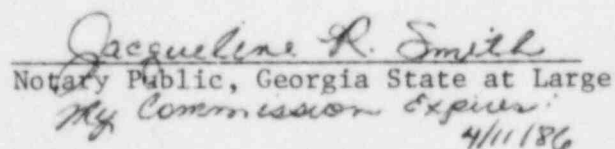 Jacqueline R. Smith
Notary Public, Georgia State at Large
My Commission Expires:
4/11/86